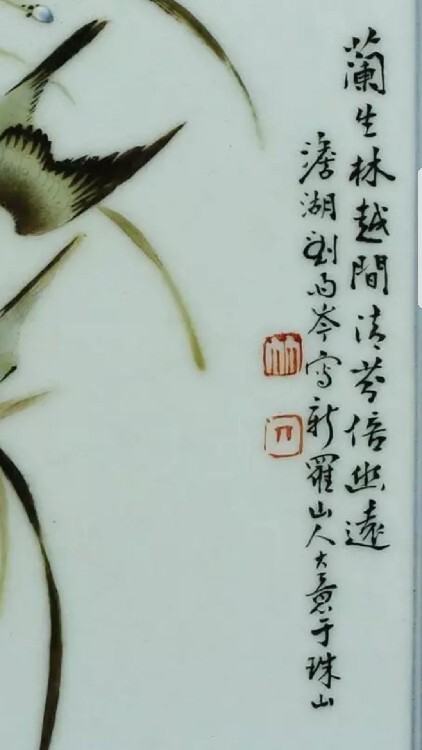 蘭生林越間清芬倍幽遠
澹湖劉雨岑寫新羅山人大意于珠山